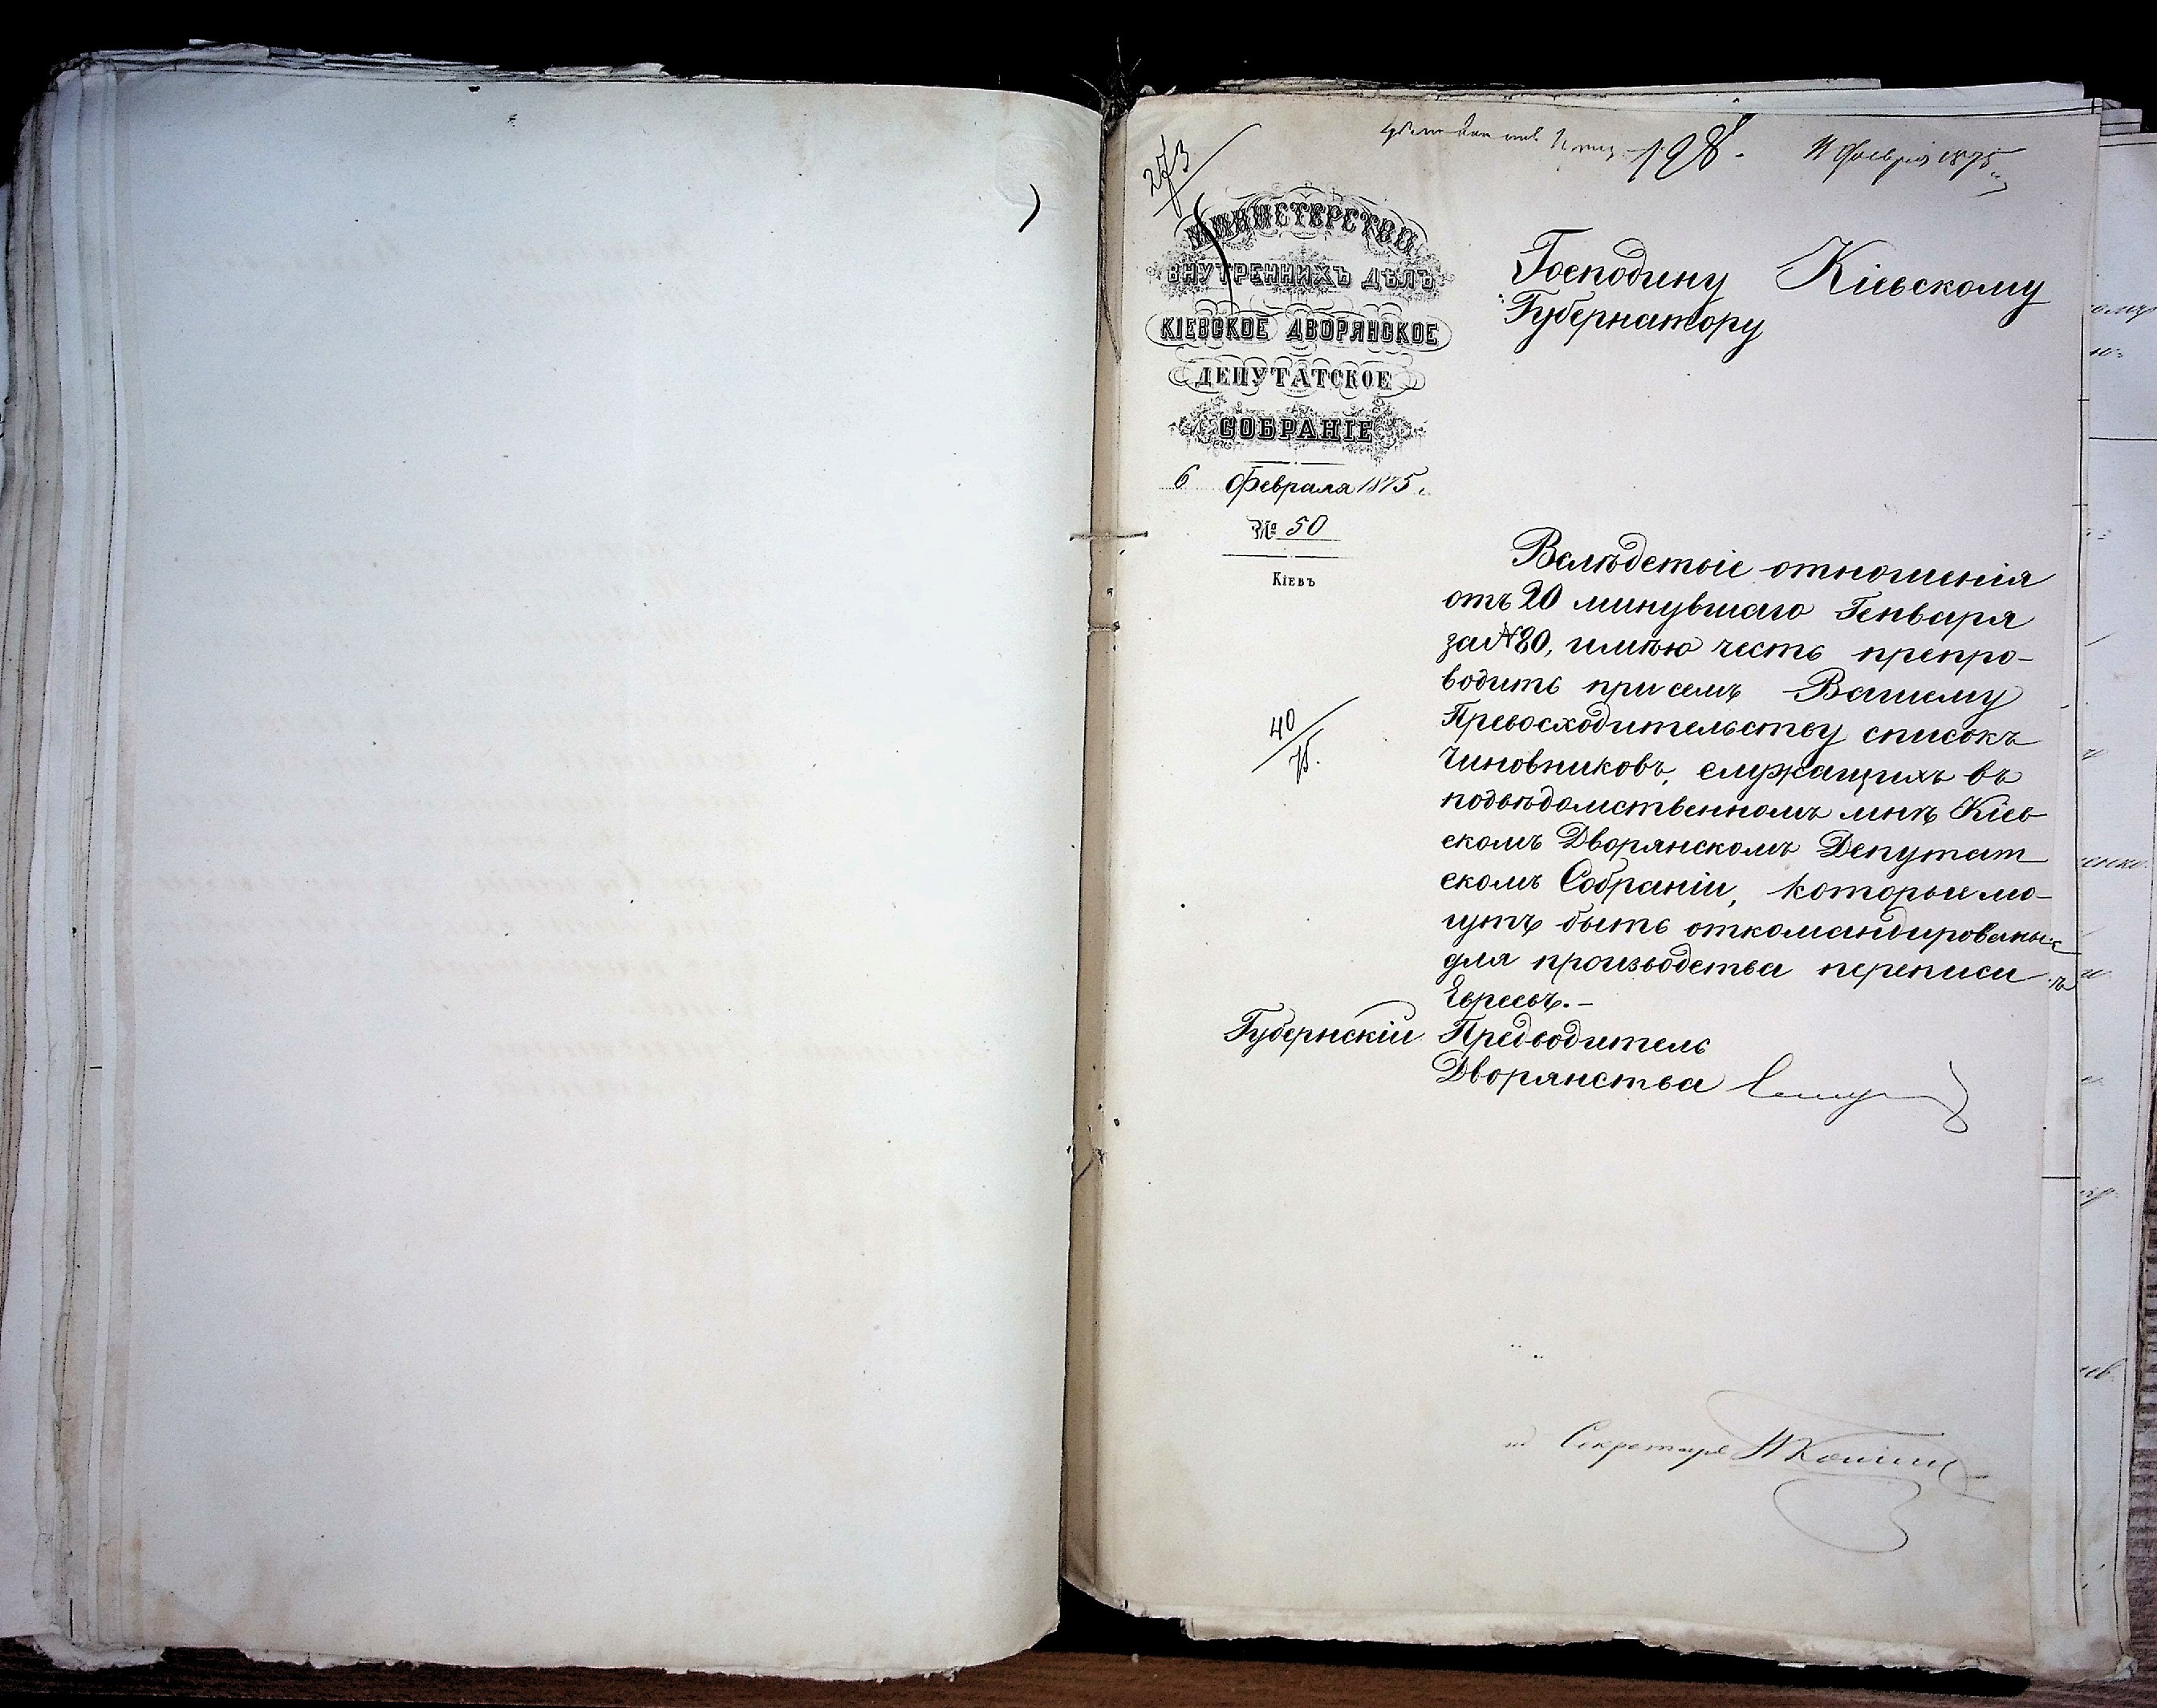 273
198.
11 Февраля 1875
МИНИСТЕРСТВО
ВНУТРЕННИХЪ ДѢЛЪ
КІЕВСКОЕ ДВОРЯНСКОЕ
ДЕПУТАТСКОЕ
СОБРАНІЕ
6 Февраля 1875 г.
№ 50
КІЕВЪ
Господину Кіевскому
Губернатору
Вслѣдствіе отношенія
отъ 20 минувшаго Генваря
за №80, имѣю честь препро-
водить при семъ Вашему
Превосходительству списокъ
чиновниковъ, служащихъ въ
подвѣдомственномъ мнѣ Кіев
скомъ Дворянскомъ Депутат
скомъ Собраніи, которые мо-
гутъ быть откомандированы
для производства переписи
Евреевъ.-
40
75.
Губернскій Предводитель
Дворянства
Секретаря